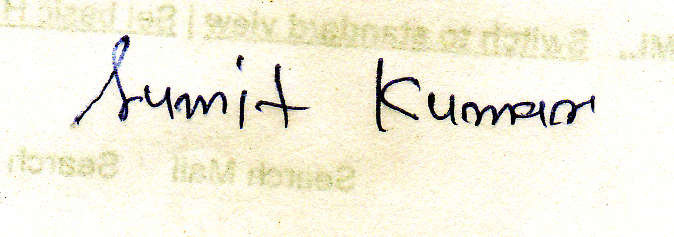 ML. Switch to standard view | Set basic H
Sumit Kumar
Search Mail Search